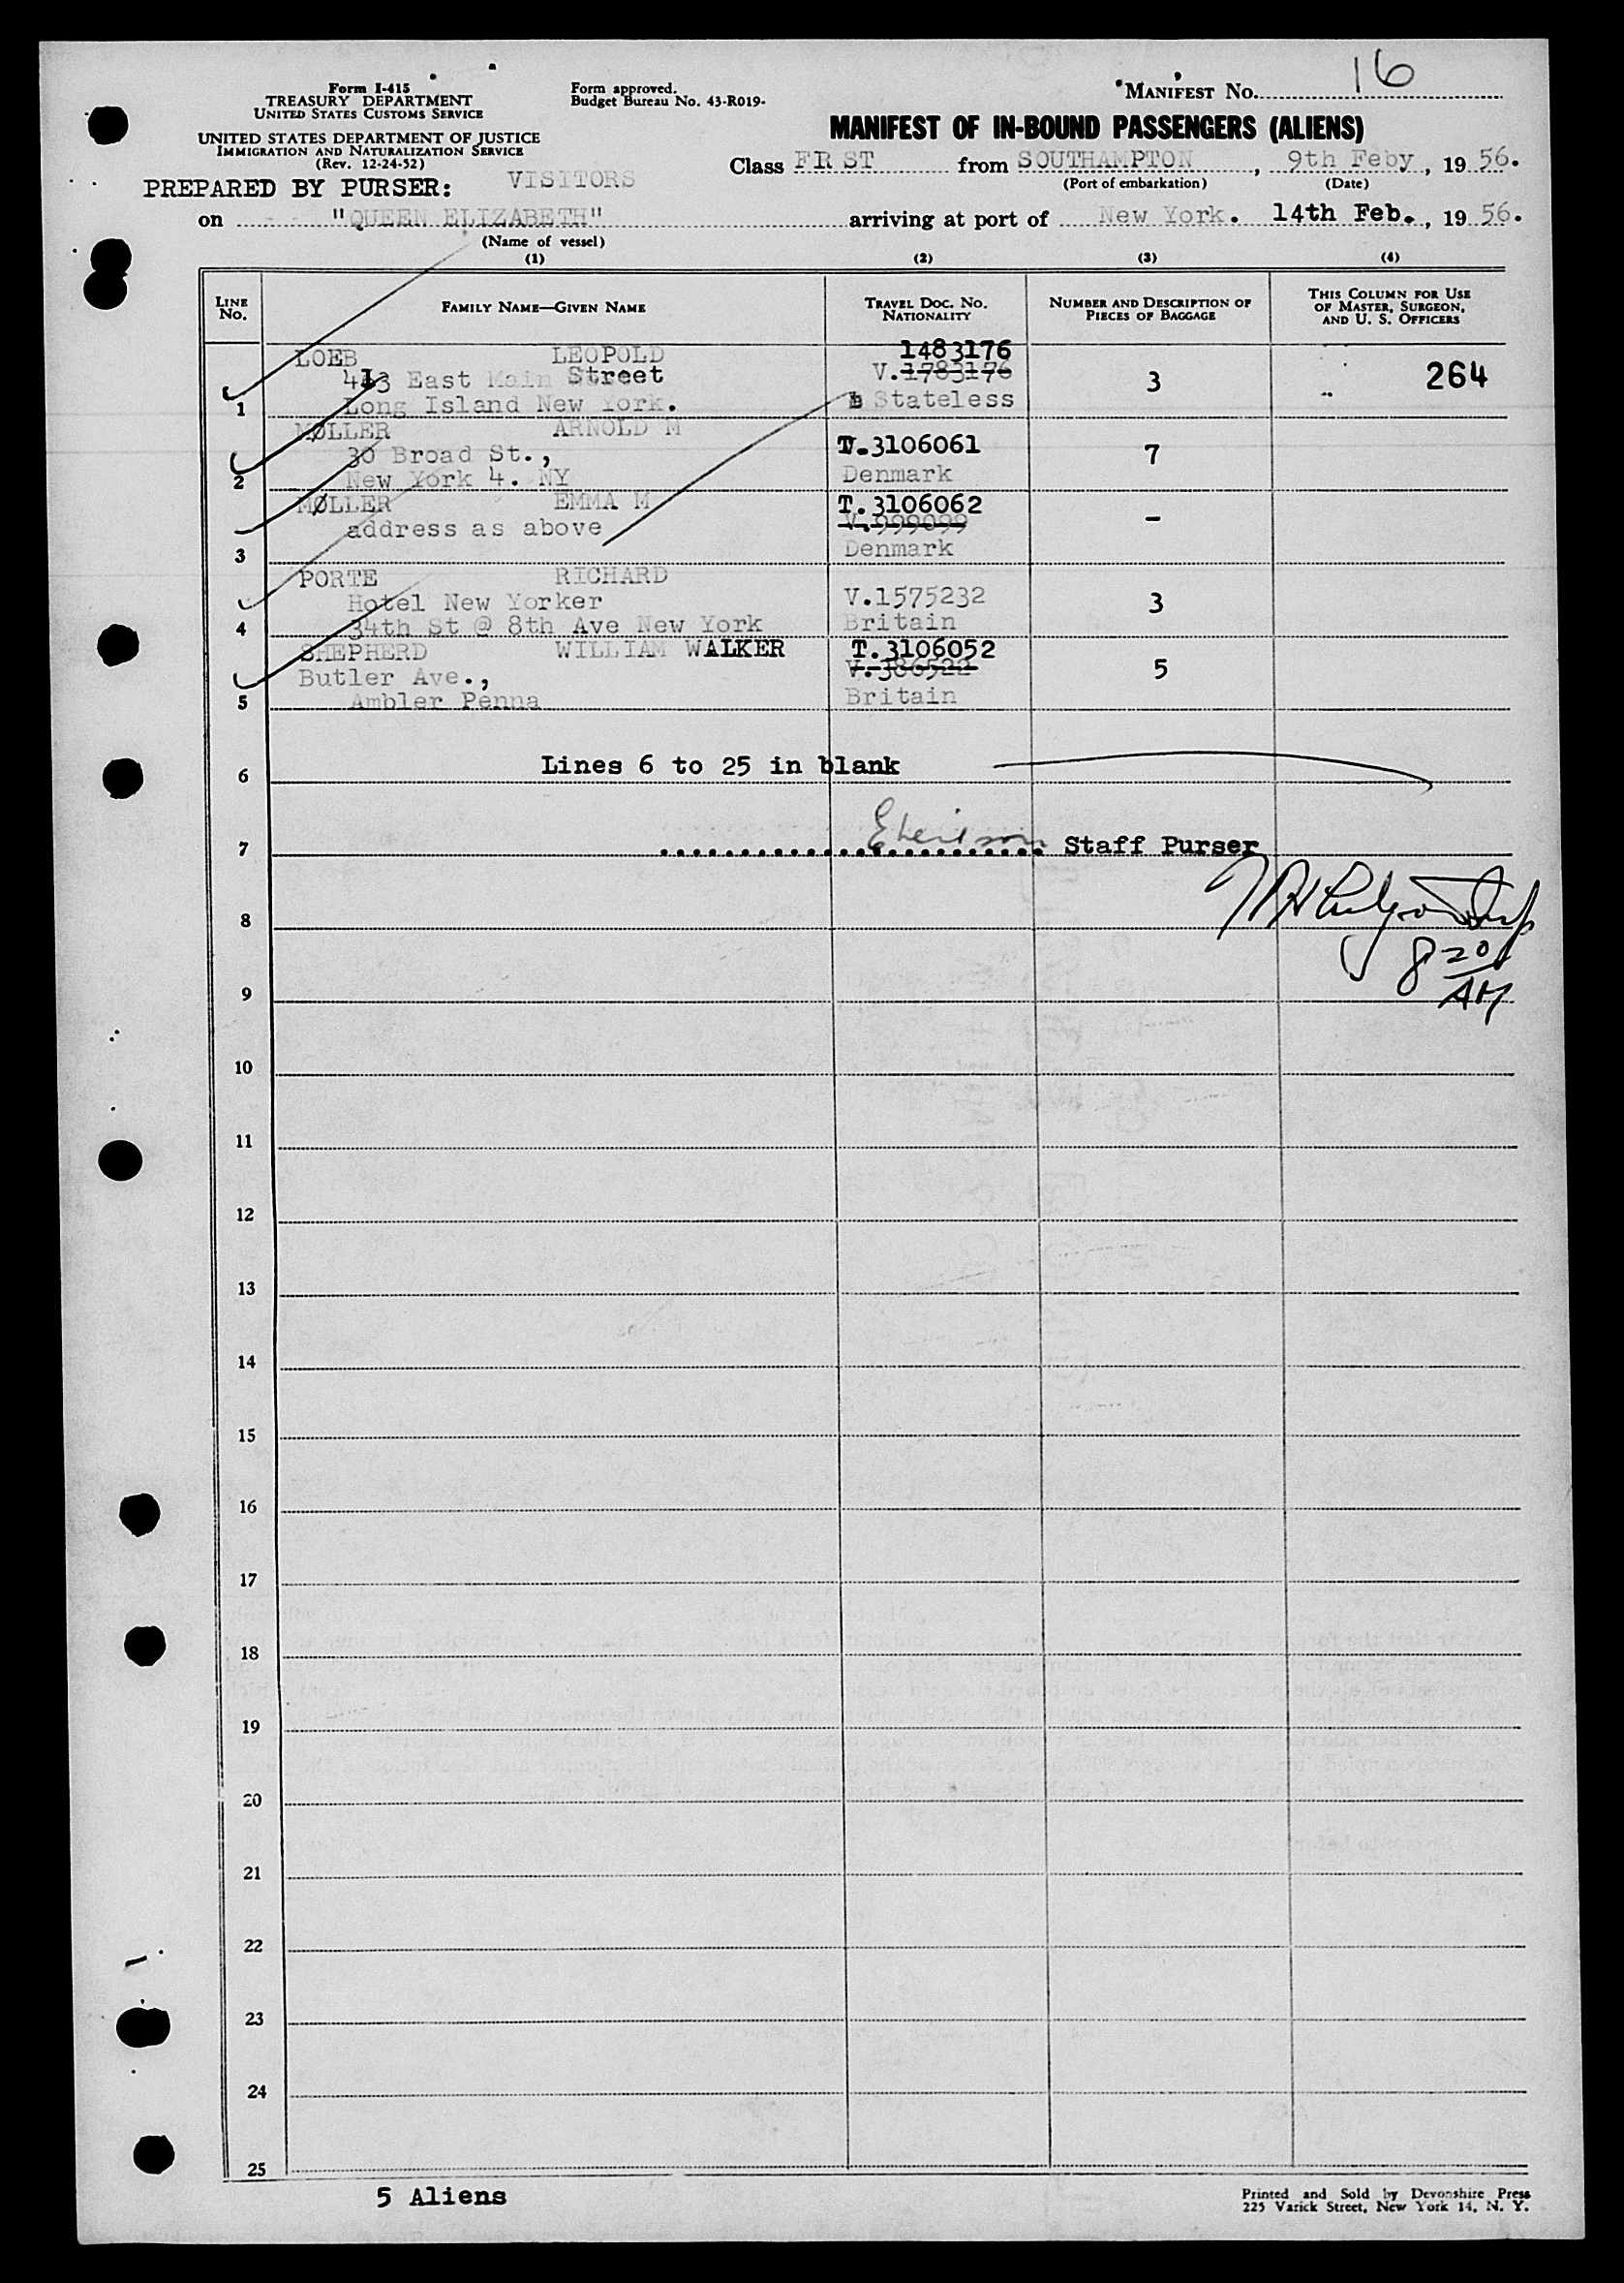 16
Form I-415
TREASURY DEPARTMENT
UNITED STATES CUSTOMS SERVICE
Form approved.
Budget Bureau No. 43-R019-
MANIFEST No.
UNITED STATES DEPARTMENT OF JUSTICE
IMMIGRATION AND NATURALIZATION SERVICE
(Rev. 12-24-52)
MANIFEST OF IN-BOUND PASSENGERS (ALIENS)
Class FR ST from SOUTHAMPTON, 9th Feby, 19 56.
(Port of embarkation) (Date)
PREPARED BY PURSER: VISITORS
on "QUEEN ELIZABETH" arriving at port of New York. 14th Feb., 19 56.
(Name of vessel)
(1) (2) (3) (4)
LINE No. FAMILY NAME—GIVEN NAME TRAVEL DOC. NO. NATIONALITY NUMBER AND DESCRIPTION OF PIECES OF BAGGAGE THIS COLUMN FOR USE OF MASTER, SURGEON, AND U. S. OFFICERS
LOEB LEOPOLD 1483176
East Main Street V.1783176 3 264
1 Long Island New York. Stateless
MØLLER ARNOLD M
30 Broad St., T.3106061 7
2 New York 4. NY Denmark
MØLLER EMMA M T.3106062
address as above V.999099 -
3 Denmark
PORTE RICHARD
Hotel New Yorker V.1575232 3
4 34th St @ 8th Ave New York Britain
SHEPHERD WILLIAM WALKER T.3106052
Butler Ave., V.386522 5
5 Ambler Penna Britain
6 Lines 6 to 25 in blank
7 Staff Purser
8
8 20
AM
9
10
11
12
13
14
15
16
17
18
19
20
21
22
23
24
25
5 Aliens
Printed and Sold by Devonshire Press
225 Varick Street, New York 14, N. Y.